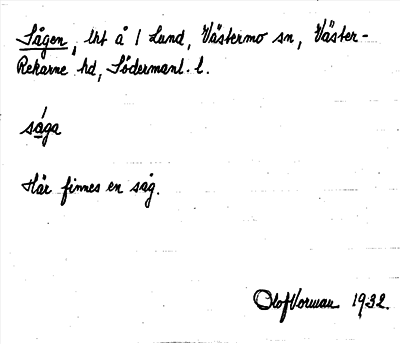 Sågen, lht å 1 Lund, Västermo sn, Väster-
Rekarne hd, Södermanl. l.
såga
Här finnes en såg.
Olof Vorman 1932.